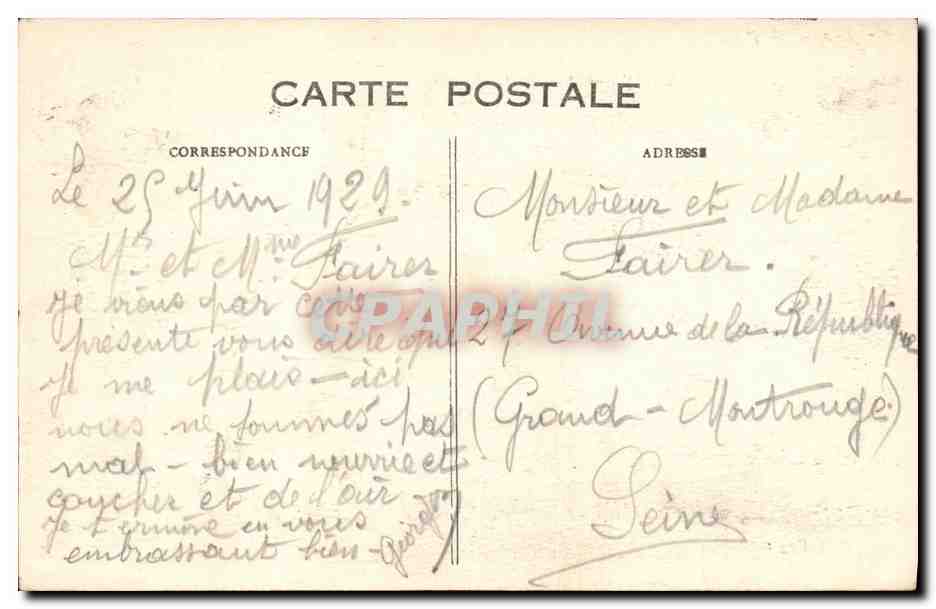 CARTE POSTALE
CORRESPONDANCE
Le 25 Juin 1929.
Mr et Mme Fairer
je viens par cette
présente vous dire que
Je me plais - ici
nous ne sommes pas
mal - bien nourrie et
coucher et de l'air -
je termine en vous
embrassant bien -
ADRESSE
Monsieur et Madame
Fairer.
27 Avenue de la République
(Grand - Montrouge)
Seine
CPARHTI